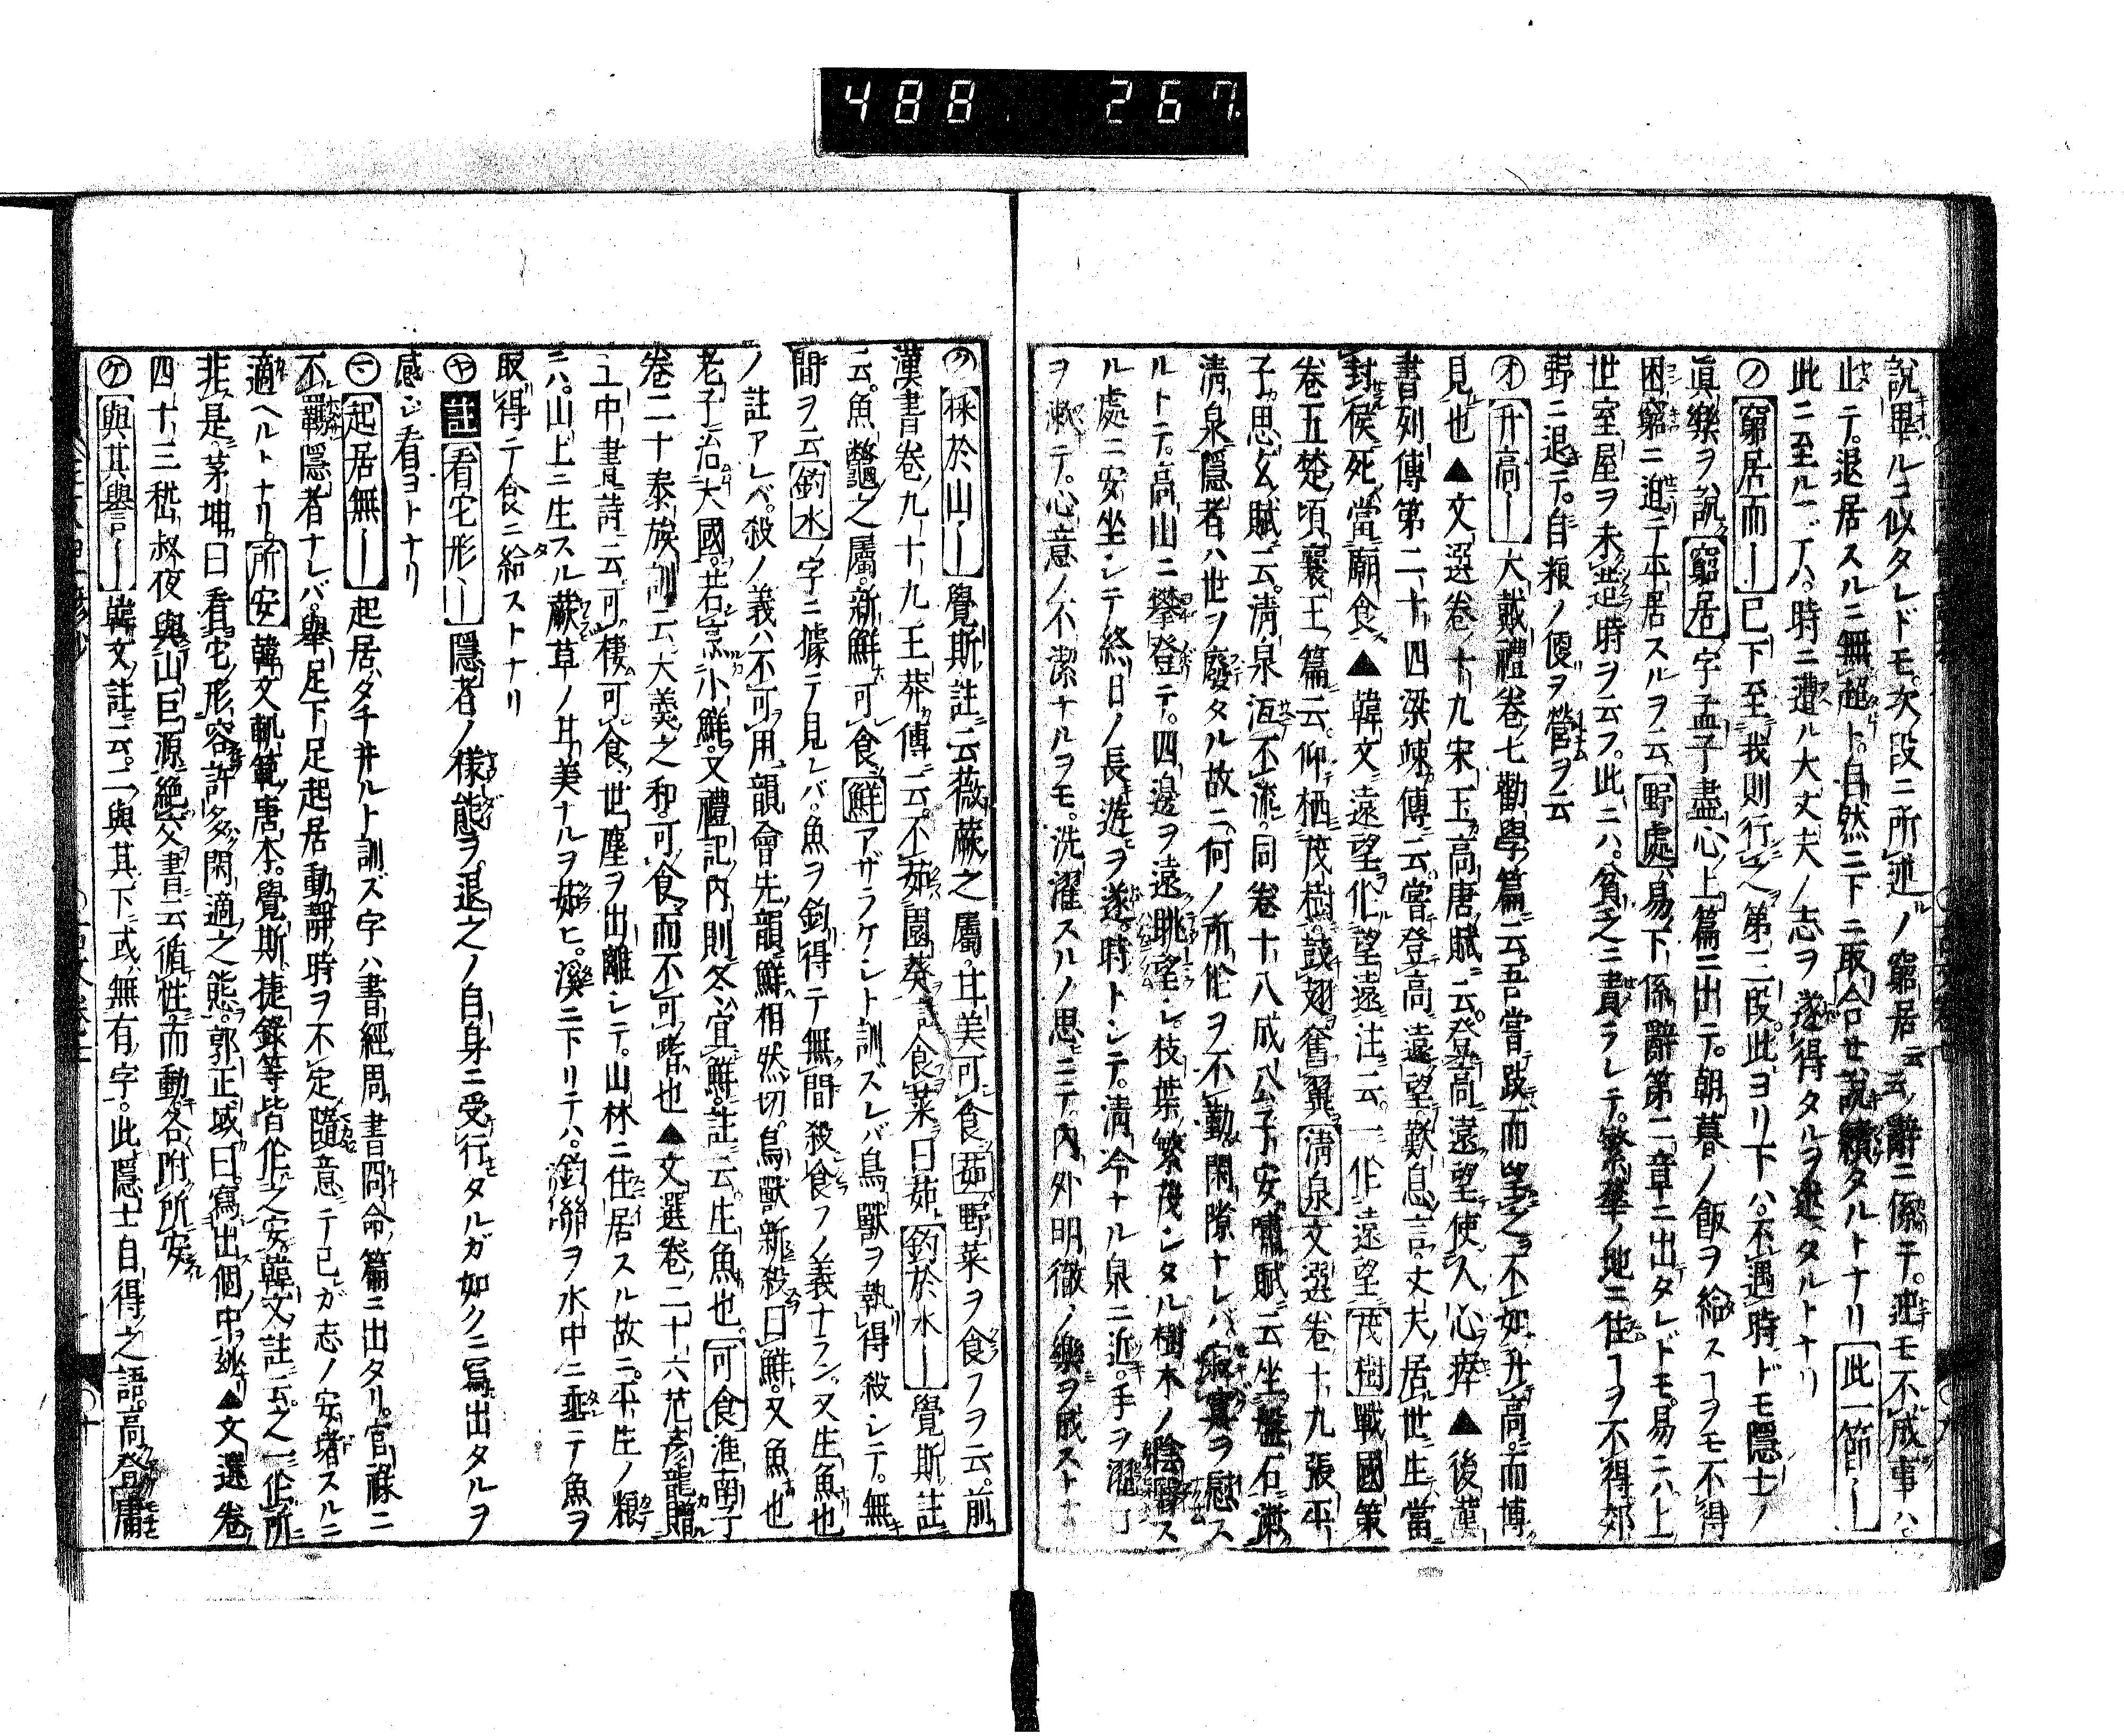 488 267
説畢ルヿ似タレドモ次段ニ所述ノ窮居云云ノ辭ニ係テ。迚モ不成事ハ
止テ。退居スルニ無趣ト。自然ニ下ニ取合セ説續タルトナリ此一節〡
此ニ至ルマデハ。時ニ遭ル大丈夫ノ志ヲ遂得タルヲ述タルトナリ
㋨窮居而〡已下至我則行之第二段。此ヨリ下ハ。不遇時ドモ隱士ノ
眞樂ヲ説窮居字孟子盡心上篇ニ出テ。朝暮ノ飯ヲ給スヿヲモ不得
困窮ニ迫テ平居スルヲ云野處易下係辭第二章ニ出タレドモ。易ニハ上
世室屋ヲ未造時ヲ云フ。此ニハ。貧乏ニ責ラレテ。繁華ノ地ニ住ヿヲ不得郊
野ニ退テ。自粮ノ便ヲ營ヲ云
㋔升高〡大戴禮卷七勸學篇云。吾嘗跂而望之不如升高而博
見也▲文選卷十九宋玉高唐賦云。登高遠望使人心瘁▲後漢
書列傳第二十四梁竦傳云嘗登高遠望。歎息言。丈夫居世生當
封侯死當廟食▲韓文遠望作望遠注云。一作遠望茂樹戰國策
卷五楚頃襄王篇云。仰栖茂樹。鼓翅奮翼清泉文選卷十九張平
子思玄賦云。清泉沍不流。同卷十八成公子安嘯賦云坐盤石漱
清泉隱者ハ世ヲ廢タル故ニ。何ノ所作ヲ不勤。閑隙ナレバ寂寞ヲ慰ス
ルトテ。高山ニ攀登テ。四邊ヲ遠眺望シ。枝葉繁茂シタル樹木ノ陰翳ス
ル處ニ安坐シテ終日ノ長遊ヲ遂。時トシテ。清冷ナル泉ニ近。手ヲ濯口
ヲ漱テ。心意ノ不潔ナルヲモ。洗濯スルノ思ニテ。内外明徹ノ樂ヲ成スト
㋗採於山〡覺斯註云薇蕨之屬。甘美可食茹野菜ヲ食フヲ云。前
漢書卷九十九王莽傳云。不茹園葵註食菜曰茹釣於水〡覺斯註
云。魚鼈之屬。新鮮可食鮮アザラケシト訓ズレバ鳥獸ヲ執得殺シテ。無
間ヲ云釣水ノ字ニ據テ見レバ。魚ヲ釣得テ無間殺食フノ義ナラン又生魚也
ノ註アレバ。殺ノ義ハ不可用韻會先韻鮮相然切。鳥獸新殺曰鮮。又魚也
老子治大國。若烹小鮮。又禮記内則冬宜鮮。註云生魚也。可食淮南子
卷二十泰族訓云大羹之和。可食而不可嗜也▲文選卷二十六范彦龍贈
工中書詩云可棲可食世塵ヲ出離シテ。山林ニ住居スル故ニ。平生ノ粮
ニハ。山上ニ生スル蕨草ノ甘美ナルヲ茹ヒ。溪ニ下リテハ。釣緡ヲ水中ニ垂テ魚ヲ
取得テ食ニ給ストナリ
㋳註看它形〡隱者ノ樣態ヲ退之ノ自身ニ受行タルガ如クニ寫出タルヲ
感ジ看ヨトナリ
㋮起居無〡起居タチ井ルト訓ズ字ハ書經周書冏命篇ニ出タリ。官祿ニ
不羈隱者ナレバ。擧足下足起居動靜時ヲ不定隨意テ己ガ志ノ安堵スルニ
適ヘルトナリ。所安韓文軌範唐本。覺斯捷録等皆作之安。韓文註云。之一作所
非是。茅坤曰看它形容許多閑適之態。郭正域曰。寫出個中妙▲文選卷
四十三嵇叔夜與山巨源絶交書云循性而動各附所安
㋘與其譽〡韓文註云。二與其下或無有字。此隱士自得之語。高登庸